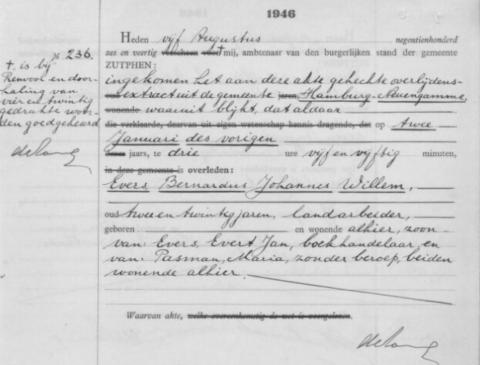 1946
N° 236.
+. is bij
Renvooi en door-
haling van
vier en twintig
gedrukte woor-
den goedgekeurd
Heden vijf Augustus negentienhonderd
zes en veertig verscheen voor mij, ambtenaar van den burgerlijken stand der gemeente
ZUTPHEN:
ingekomen het aan deze akte gehechte overlijdens-
extract uit de gemeente Hamburg-Neuengamme,
wonende waaruit blijkt, dat aldaar
die verklaarde, daarvan uit eigen wetenschap kennis dragende, dat op twee
Januari des vorigen
dezes jaars, te drie ure vijf en vijftig minuten,
in deze gemeente is overleden:
Evers, Bernardus Johannes Willem,
oud twee en twintig jaren, landarbeider,
geboren en wonende alhier, zoon
van Evers, Evert Jan, boekhandelaar, en
van Pasman, Maria, zonder beroep, beiden
wonende alhier.
Waarvan akte, welke overeenkomstig de wet is voorgelezen.